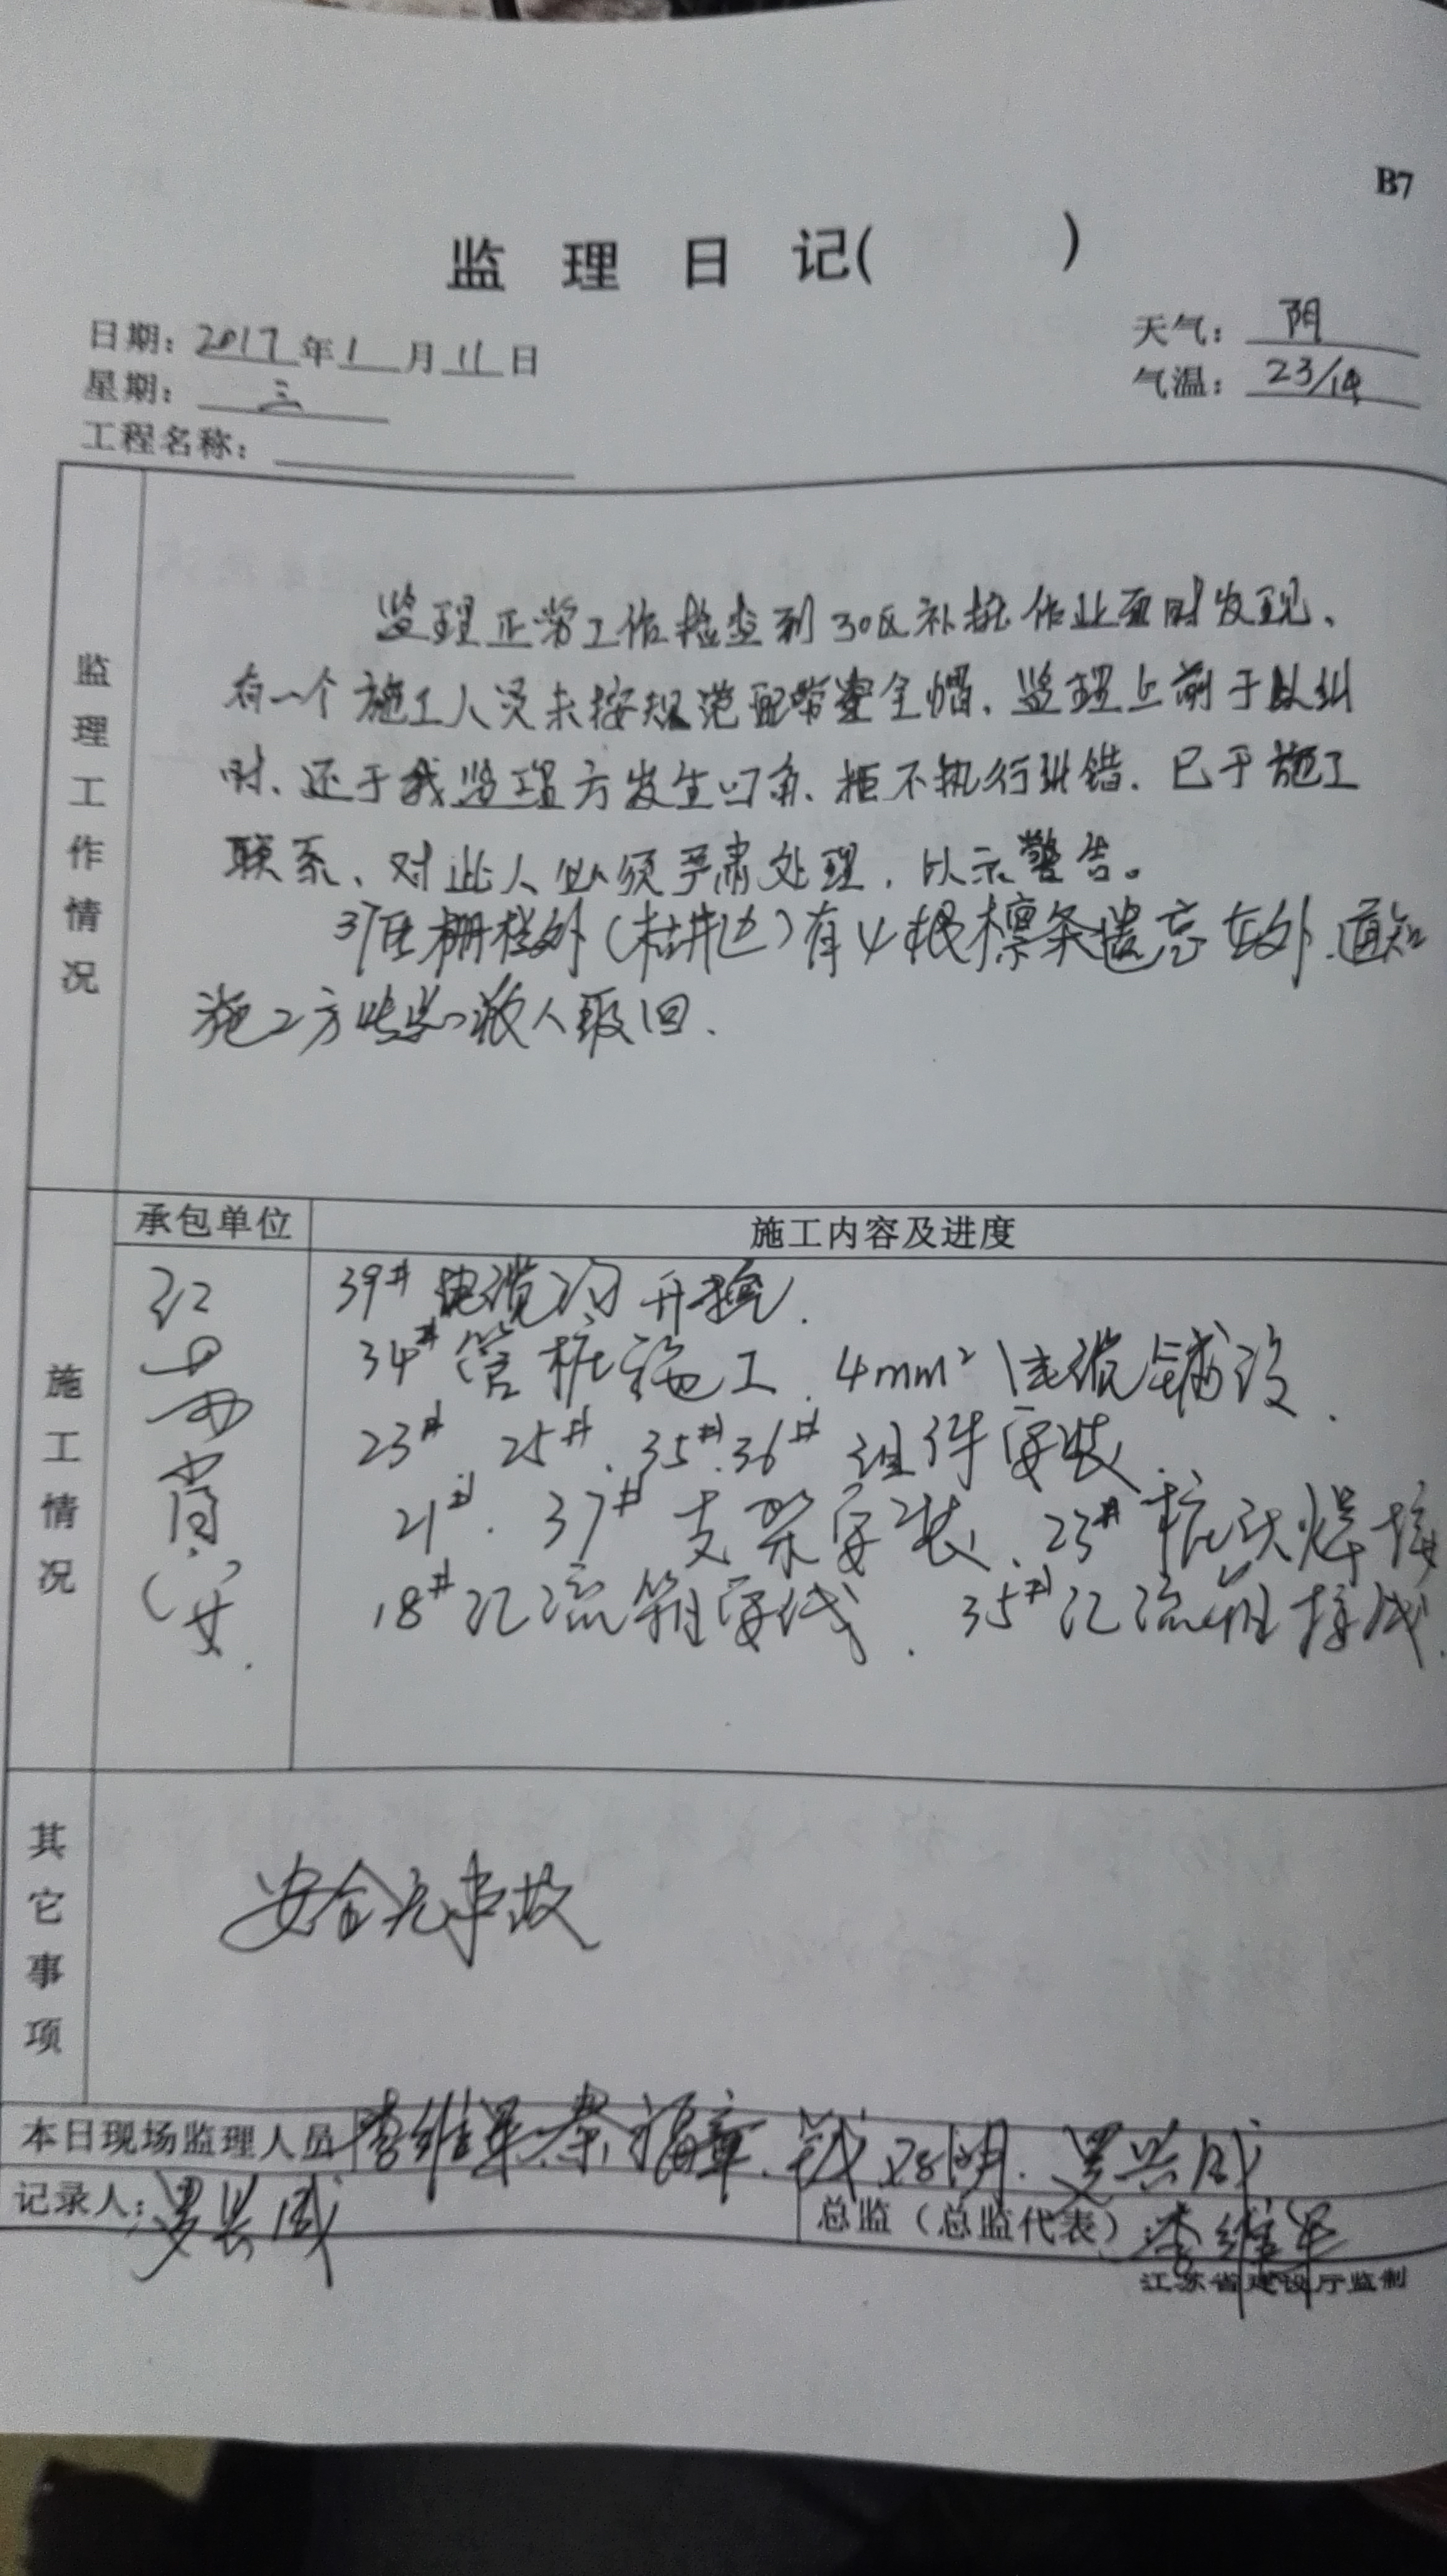 B7
监理日记( )
日期：2017年1月11日
天气：阴
星期：三
气温：23/14
工程名称：
监理工作情况
监理正常工作检查到30区补桩作业面时发现、
有一个施工人员未按规范配带安全帽、监理上前于以纠
时、还于我监理方发生口角、拒不执行纠错、已于施工
联系、对此人必须严肃处理、以示警告。
37区栅栏外(枯井边)有4根檩条遗忘在外、通知
施工方 派人 回.
承包单位
施工内容及进度
施工情况
39# 电缆沟开挖.
34# 管桩施工. 4mm² 电缆铺设.
23#. 25#. 35#. 36# 组件安装.
21#. 37# 支架安装. 23# 桩头焊接
18# 汇流箱安线. 35# 汇流箱接线.
其它事项
安全无事故
本日现场监理人员 李维军. 秦福章. 钱 明. 罗兴成
记录人：罗兴成
总监（总监代表）：李维军
江苏省建设厅监制